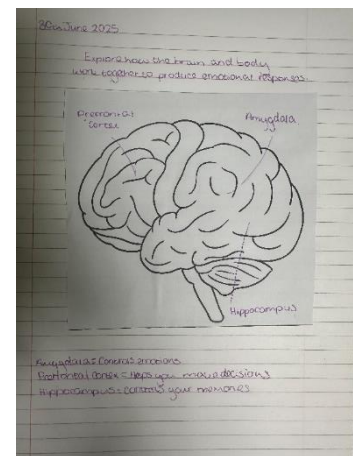 30th June 2025
Explore how the brain and body
work together to produce emotional responses.
Prefrontal
Cortex
Amygdala
Hippocampus
Amygdala = Controls emotions
Prefrontal Cortex = Helps you make decisions
Hippocampus = controls your memories